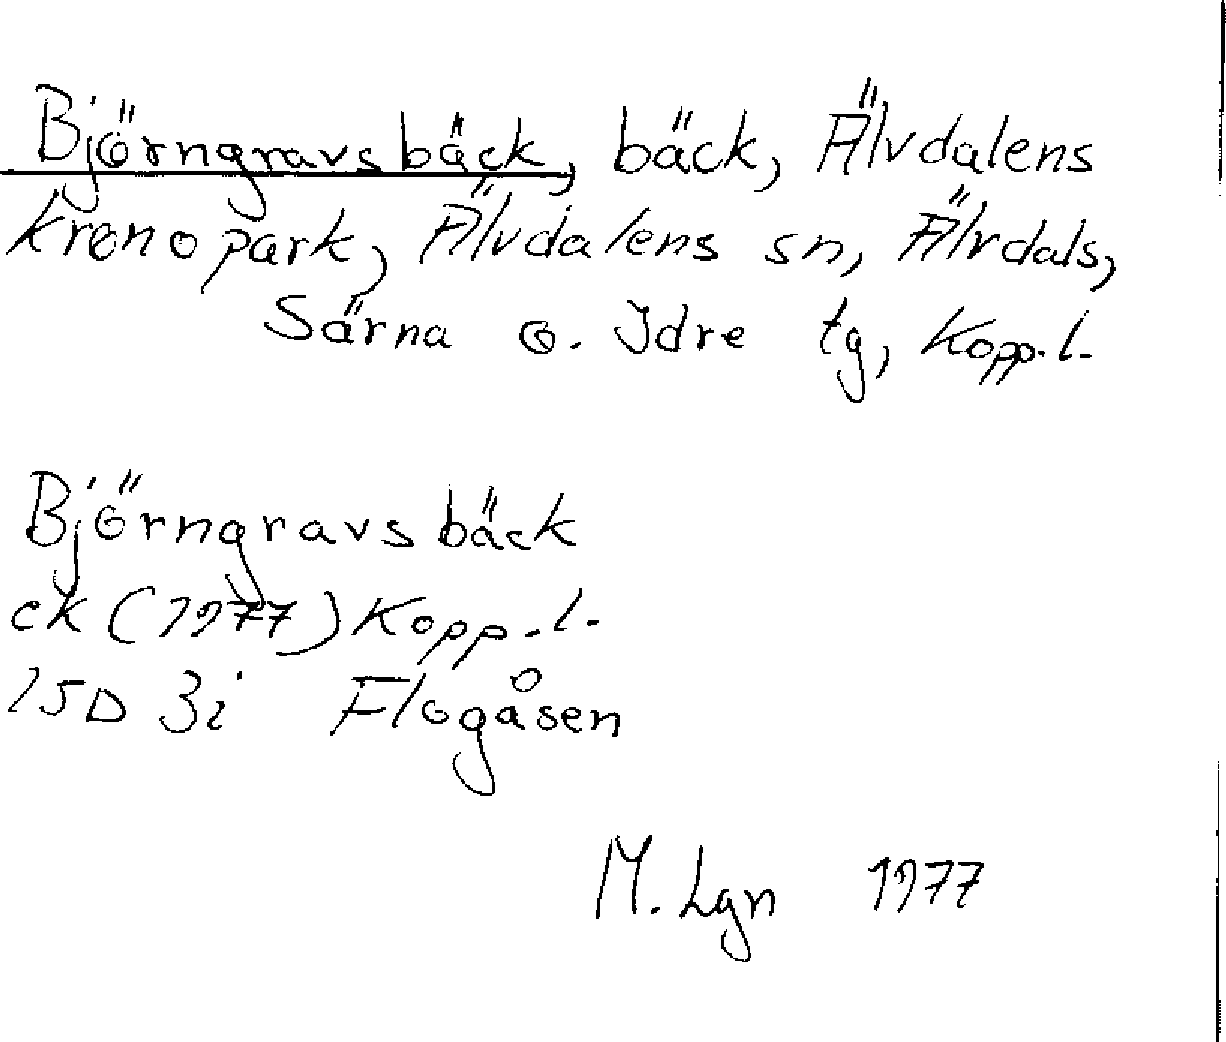 Björngravsbäck, bäck, Älvdalens
kronopark, Älvdalens sn, Älvdals,
Särna o. Idre tg, Kopp. l.
Björngravsbäck
ek (1977) Kopp. l.
15D 3i Flogåsen
M. Lgn 1977